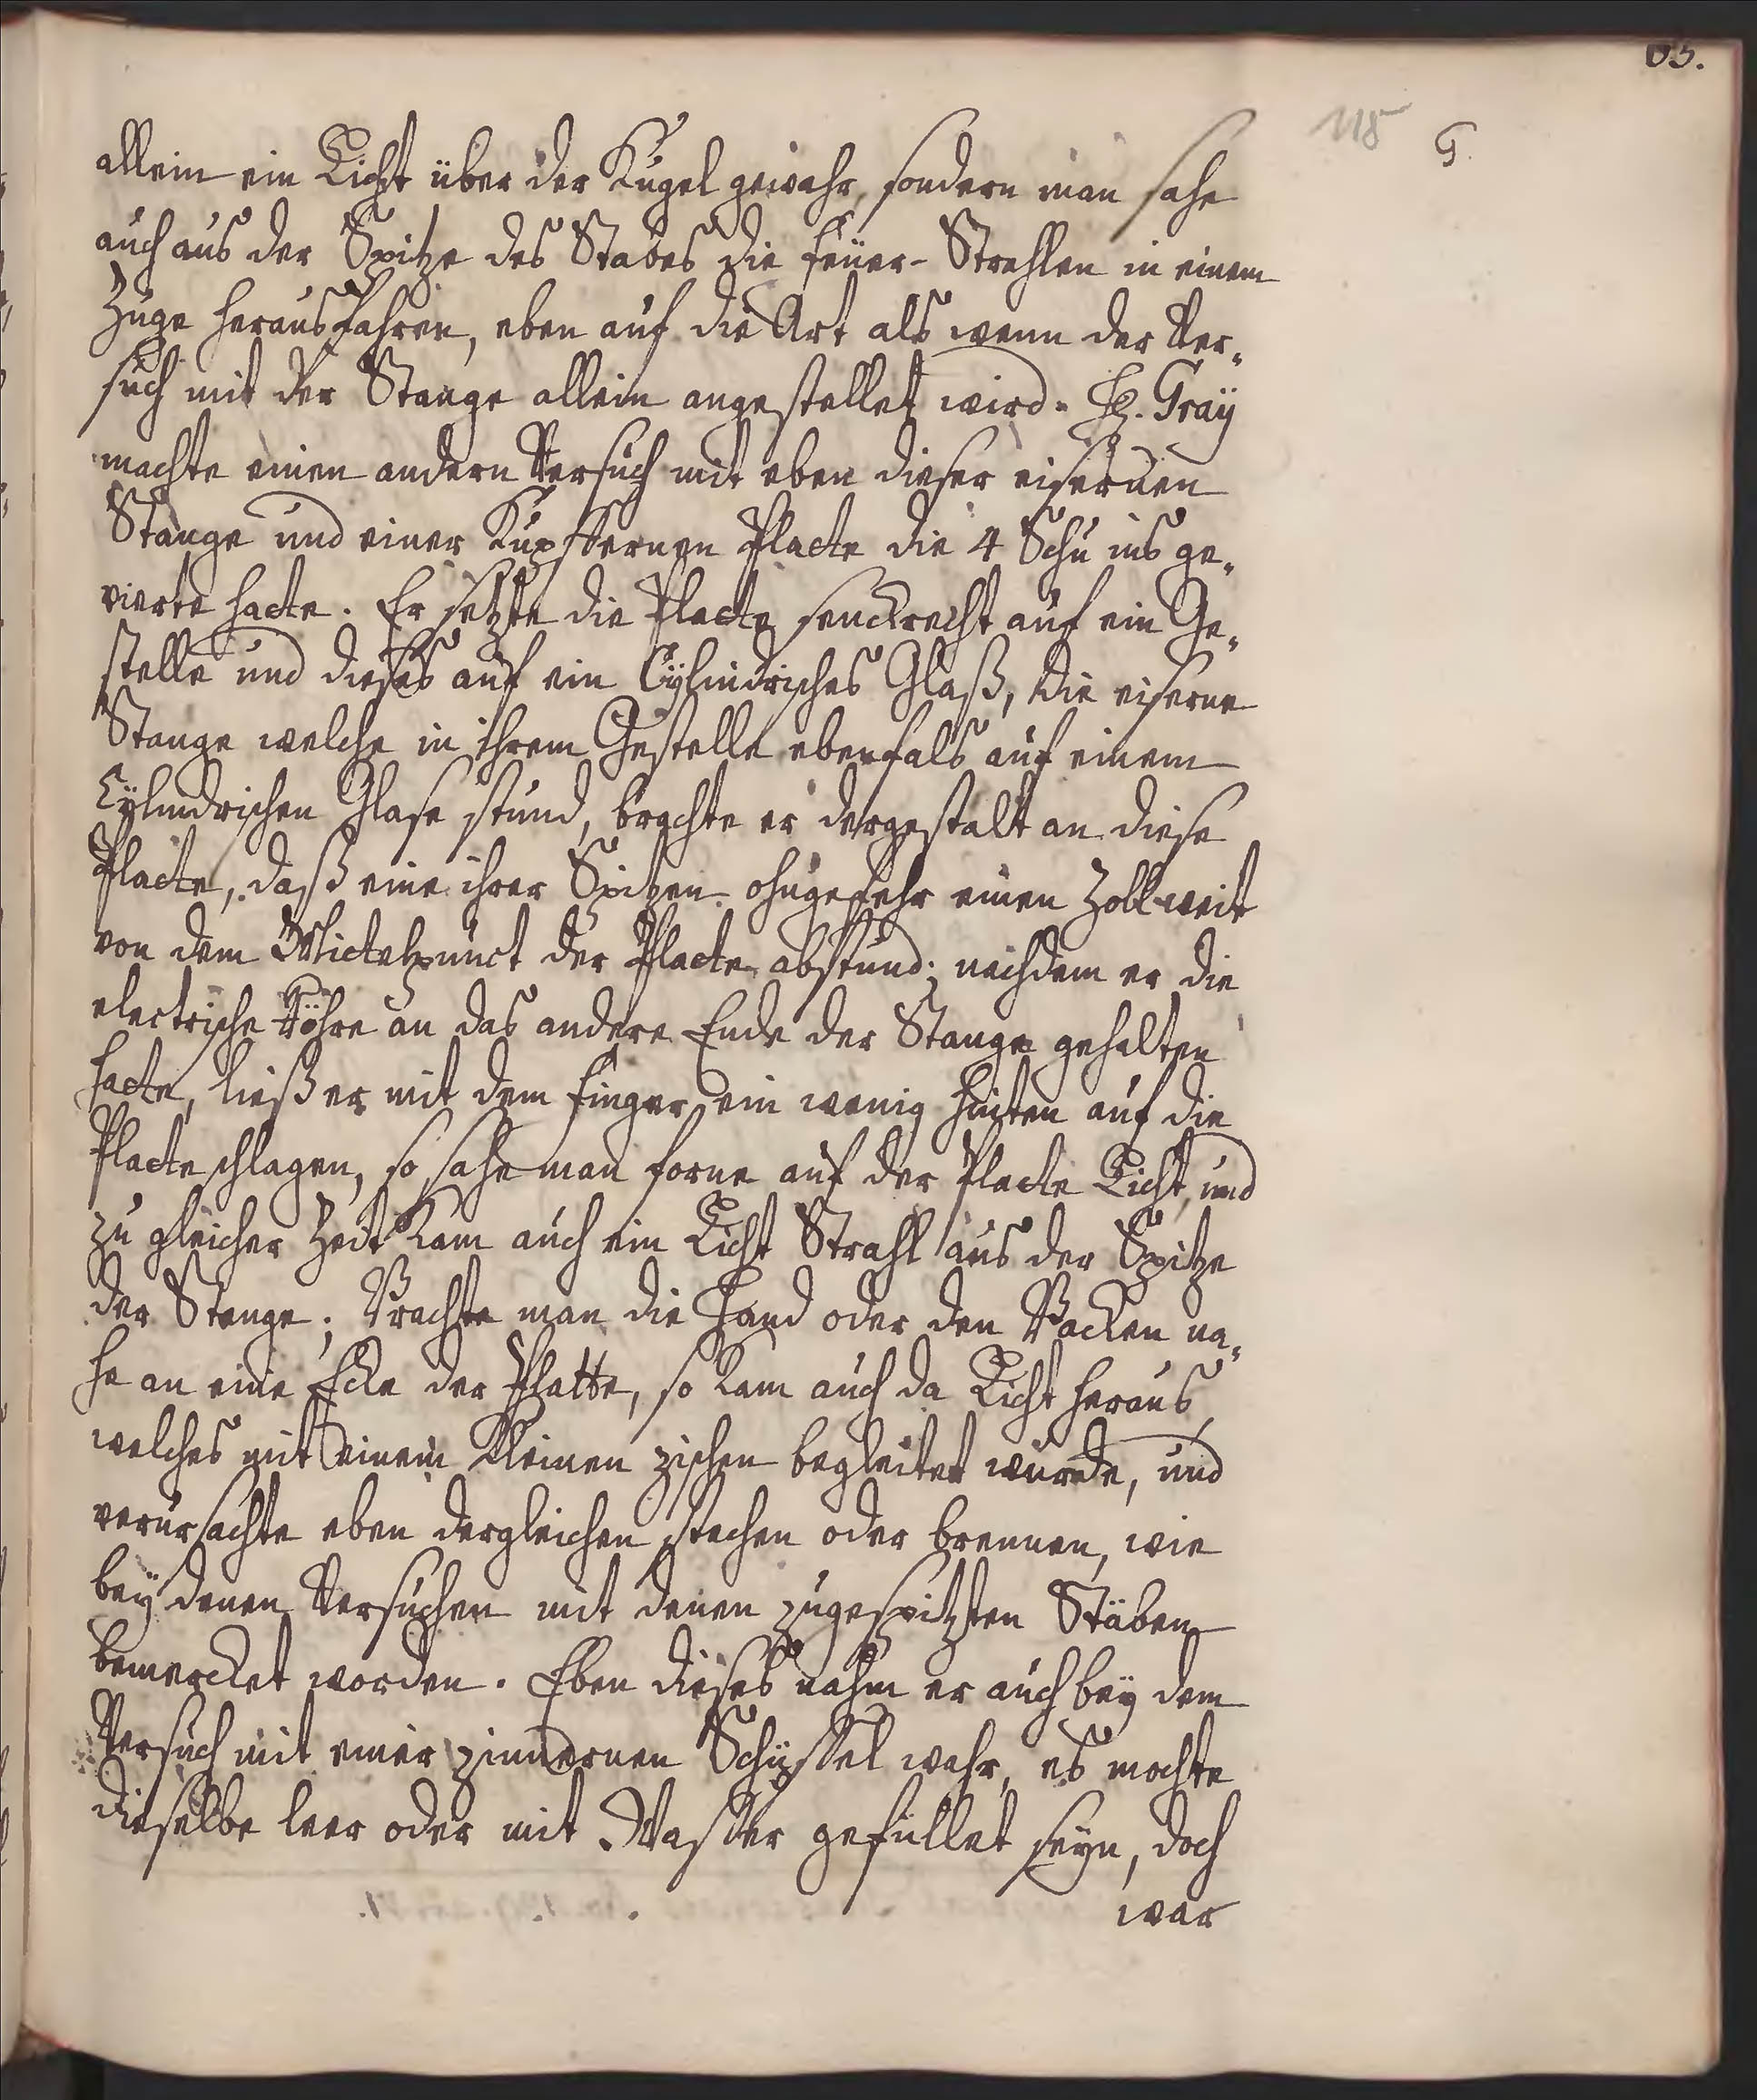 118 G.
allein ein Licht über der Kugel gewahr, sondern man sahe
auch aus der Spitze des Stabes die Feuer-Strahlen in einem
Zuge herausfahren, eben auf die Art als wenn der Ver„
such mit der Stange allein angestellet wird. H. Graÿ
machte einen andern Versuch mit eben dieser eisernen
Stange und einer Kupffernen Platte die 4 Schu ins ge„
vierte hatte. Er setzte die Platte senckrecht auf ein Ge„
stelle und dieses auf ein Cÿlindrisches Glaß, die eiserne
Stange welche in ihrem Gestelle ebenfals auf einem
Cÿlindrischen Glase stund, brachte er dergestalt an diese
Platte, daß eine ihrer Spitzen ohngefehr einen Zoll weit
von dem Mittelpunct der Platte abstund; nachdem er die
electrische Röhre an das andere Ende der Stange gehalten
hatte, ließ er mit dem Finger ein wenig hinten auf die
Platte schlagen, so sahe man forne auf der Platte Licht, und
zu gleicher Zeit kam auch ein Licht Strahl aus der Spitze
der Stange; Brachte man die Hand oder den Backen na„
he an eine Ecke der Platte, so kam auch da Licht heraus,
welches mit einem kleinen zischen begleitet wurde, und
verursachte eben dergleichen stechen oder brennen, wie
beÿ denen Versuchen mit denen zugespitzten Stäben
bemercket worden. Eben dieses nahm er auch beÿ dem
Versuch mit einer zinnernen Schüssel wahr, es mochte
dieselbe leer oder mit Wasser gefüllet seÿn, doch
war